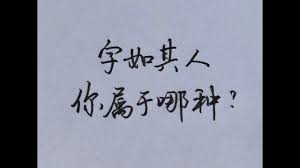 字如其人
你属于哪种？